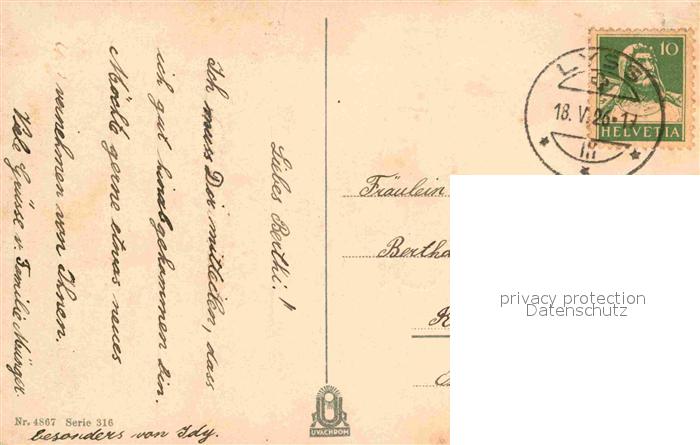 Liebes Berthi!"
Ich muss Dir mitteilen, dass
ich gut hinabgekommen bin.
Möchte gerne etwas neues
vernehmen von Ihnen.
Viele Grüsse v. Familie Münger.
besonders von Idy.
Nr. 4867 Serie 316
UVACHROM
10
HELVETIA
LYSS
18. V. 26-17
Fräulein
Bertha
privacy protection
Datenschutz